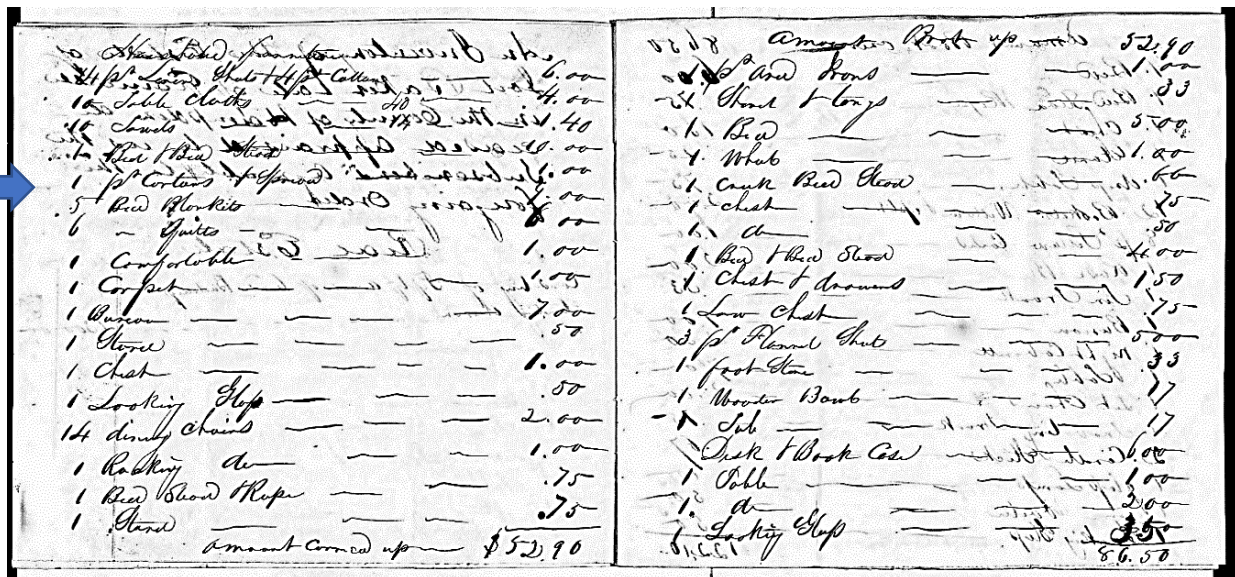 Household Furniture
14 pr Linnen Sheets & 4 pr Cotton 6.00
10 Table Cloths 4.00
10 Towels 1.40
Bed & Bed Stead
1 pr Cortans & Spread
5 Bed Blankits
6 — Quilts
1 Comfortable 1.00
1 Carpet 1.00
1 Bureau 7.00
1 Stand .50
1 Chest 1.00
1 Looking Glass .50
14 dining chairs 2.00
1 Rocking do 1.00
1 Bed Stead & Rope .75
1 Stand .75
Amount carried up $52.90
Amount Bort up 52.90
1 pr And Irons 1.00
Shovel & tongs .33
1 Bed 5.00
1 Wheel 1.00
1 Bed Stead
1 chest
1 do .50
1 Bed & Bed Stead 4.00
1 Chest & drawers 1.50
1 Low Chest .75
3 pr Flannel Sheets 5.00
1 foot Stove .33
1 Wooden Bowl 17
1 Tub 17
Desk & Book Case 6.00
1 Table 1.00
1 do 2.00
1 Looking Glass
86.50